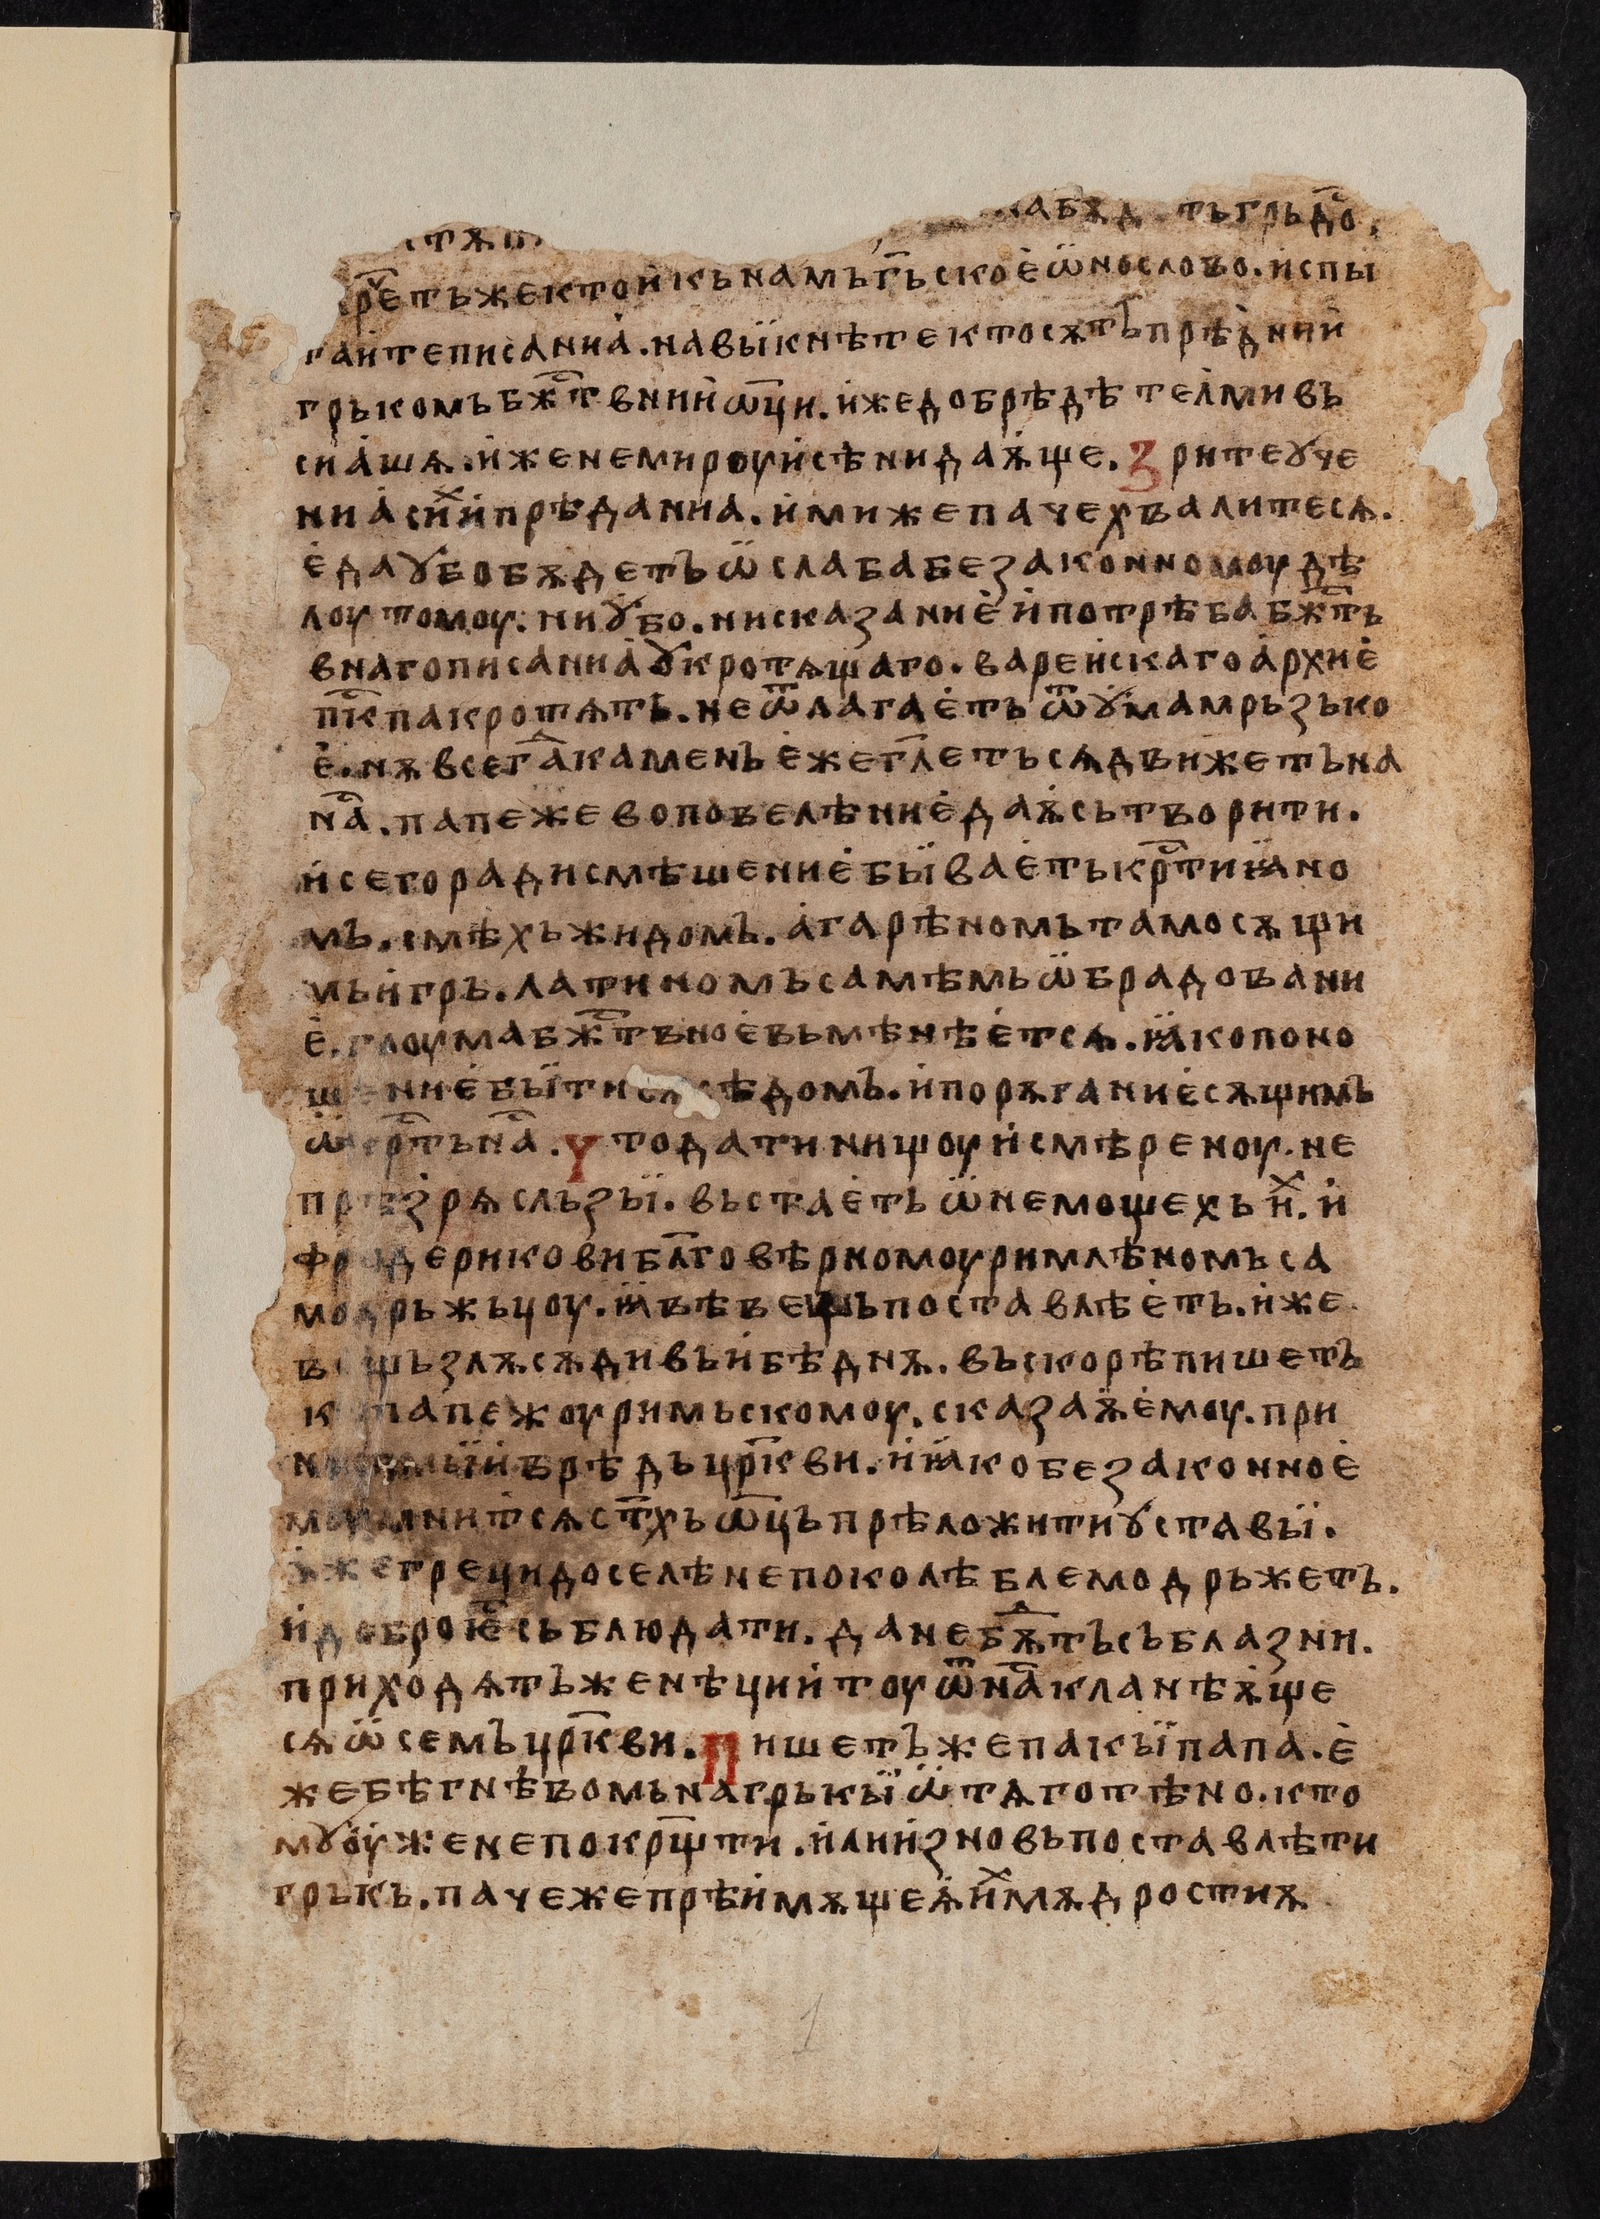 стѫп абѫд тъ грьдо.
рⷭ҇етъ же кто и къ намъ гⷭ҇ьское ѡно слово. испы
таите писаниа. навыкнѣте кто сѫтъ прѣднии
грькомъ бжⷭ҇твнии ѡ҃ци. иже добрѣдѣтелми въ
сиашѧ. иже не мироу исѣнидаѫще. Зрите ꙋче
ниа сиⷯ и прѣданиа. имиже паче хвалитесѧ.
еда ꙋбо бѫдетъ ѡслаба безаконномоу дѣ
лоу томоу. ни ꙋбо. ни сказание и потрѣба бжⷭ҇тъ
внаго писаниа ꙋкротѧщаго. варенскаго архие
пⷭ҇кпа кротѧтъ. не ѿлагаетъ ѿ ꙋма мръзъко
е. нѫ всегⷣа камень еже гл҃етъсѧ движетъ на
нⷭ҇а. папежево повелѣние даѫ сътворити.
и сего ради смѣшение бываетъ крⷭ҇тиꙗно
мъ. смѣхъ жидомъ. агарѣномъ тамо сѫщи
мъ игръ. латиномъ самѣмь ѡбрадовани
е. глоума бжⷭ҇твное въмѣнѣетсѧ. ꙗко поно
шение быти сѫсѣдомъ. и порѫгание сѫщимъ
ѡкрⷭ҇тъ нⷭ҇а. Что дати нищоу и смѣреноу. не
прѣзрѧ слъзы. въстаетъ ѡ немощехъ иⷯ. и
фредерикови бл҃говѣрномоу римлѣномъ са
модръжьцоу. ꙗвѣ вещъ поставлѣетъ. иже
вещъ злѫ сѫдивъ и бѣднѫ. въскорѣ пишетъ
к папежоу римьскомоу. сказаѫ емоу. при
носимыи врѣдъ цр҃кви. и ꙗко безаконное
мънитсѧ ст҃хъ ѡ҃цъ прѣложити ꙋставы.
ꙗже греци доселѣ непоколѣблемо дръжетъ.
и добро юⷭ҇ съблюдати. да не бѫⷣтъ съблазни.
приходѧтъ же нѣции тоу ѿ нⷭ҇а кланѣѫще
сѧ ѡ семъ цр҃кви. Пишетъ же пакы папа. е
же бѣ гнѣвомъ на гръкы ѡтѧготѣно. кто
мꙋ оуже не покрⷭ҇тти. или изновъ поставлѣти
гръкъ. паче же прѣимѫщеѫ иⷯ мѫдростиѫ
1